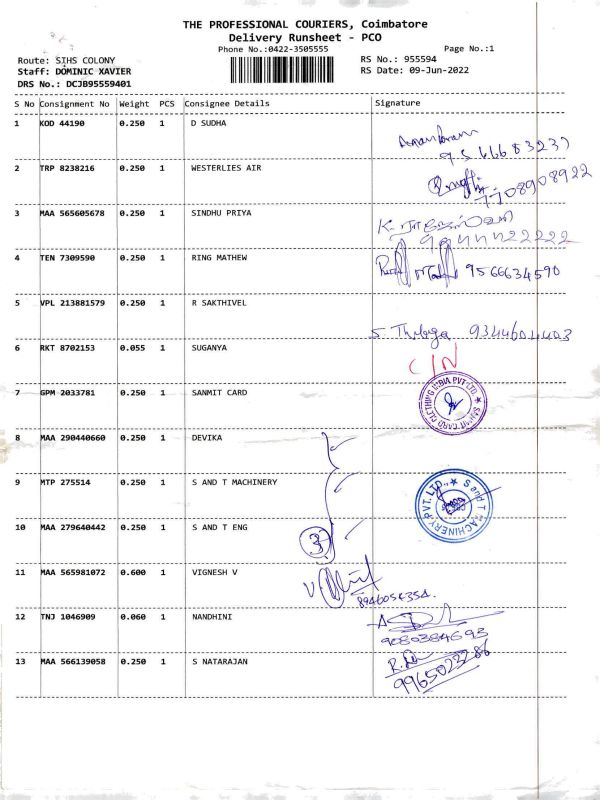 THE PROFESSIONAL COURIERS, Coimbatore
Delivery Runsheet - PCO
Phone No.:0422-3505555
Page No.:1
Route: SIHS COLONY
RS No.: 955594
Staff: DOMINIC XAVIER
RS Date: 09-Jun-2022
DRS No.: DCJB95559401
S No Consignment No Weight PCS Consignee Details Signature
1 KOD 44190 0.250 1 D SUDHA
2 TRP 8238216 0.250 1 WESTERLIES AIR
7708908922
3 MAA 565605678 0.250 1 SINDHU PRIYA
4 TEN 7309590 0.250 1 RING MATHEW
9566634590
5 VPL 213881579 0.250 1 R SAKTHIVEL
9344604403
6 RKT 8702153 0.055 1 SUGANYA
C/N
7 GPM 2033781 0.250 1 SANMIT CARD
8 MAA 290440660 0.250 1 DEVIKA
9 MTP 275514 0.250 1 S AND T MACHINERY
S and T MACHINERY PVT. LTD.,
10 MAA 279640442 0.250 1 S AND T ENG
3
11 MAA 565981072 0.600 1 VIGNESH V
8946054354
12 TNJ 1046909 0.060 1 NANDHINI
9080384693
13 MAA 566139058 0.250 1 S NATARAJAN